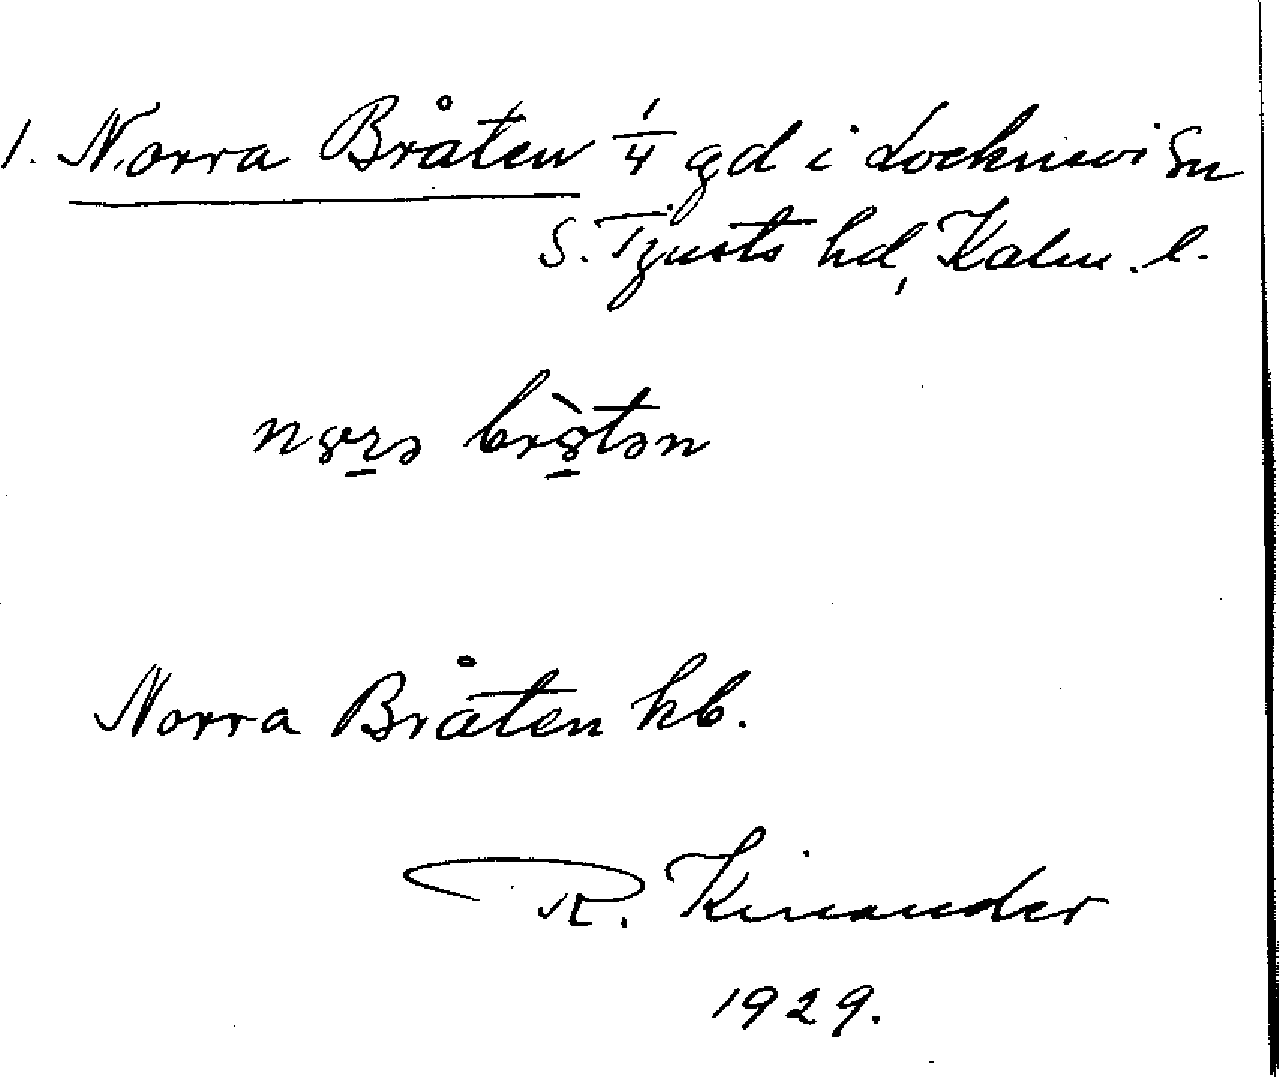 1. Norra Bråten 1/4 gd i Locknevi Sn
S. Tjusts hd, Kalm. l.
Norra Bråten hb.
R. Kinander
1929.